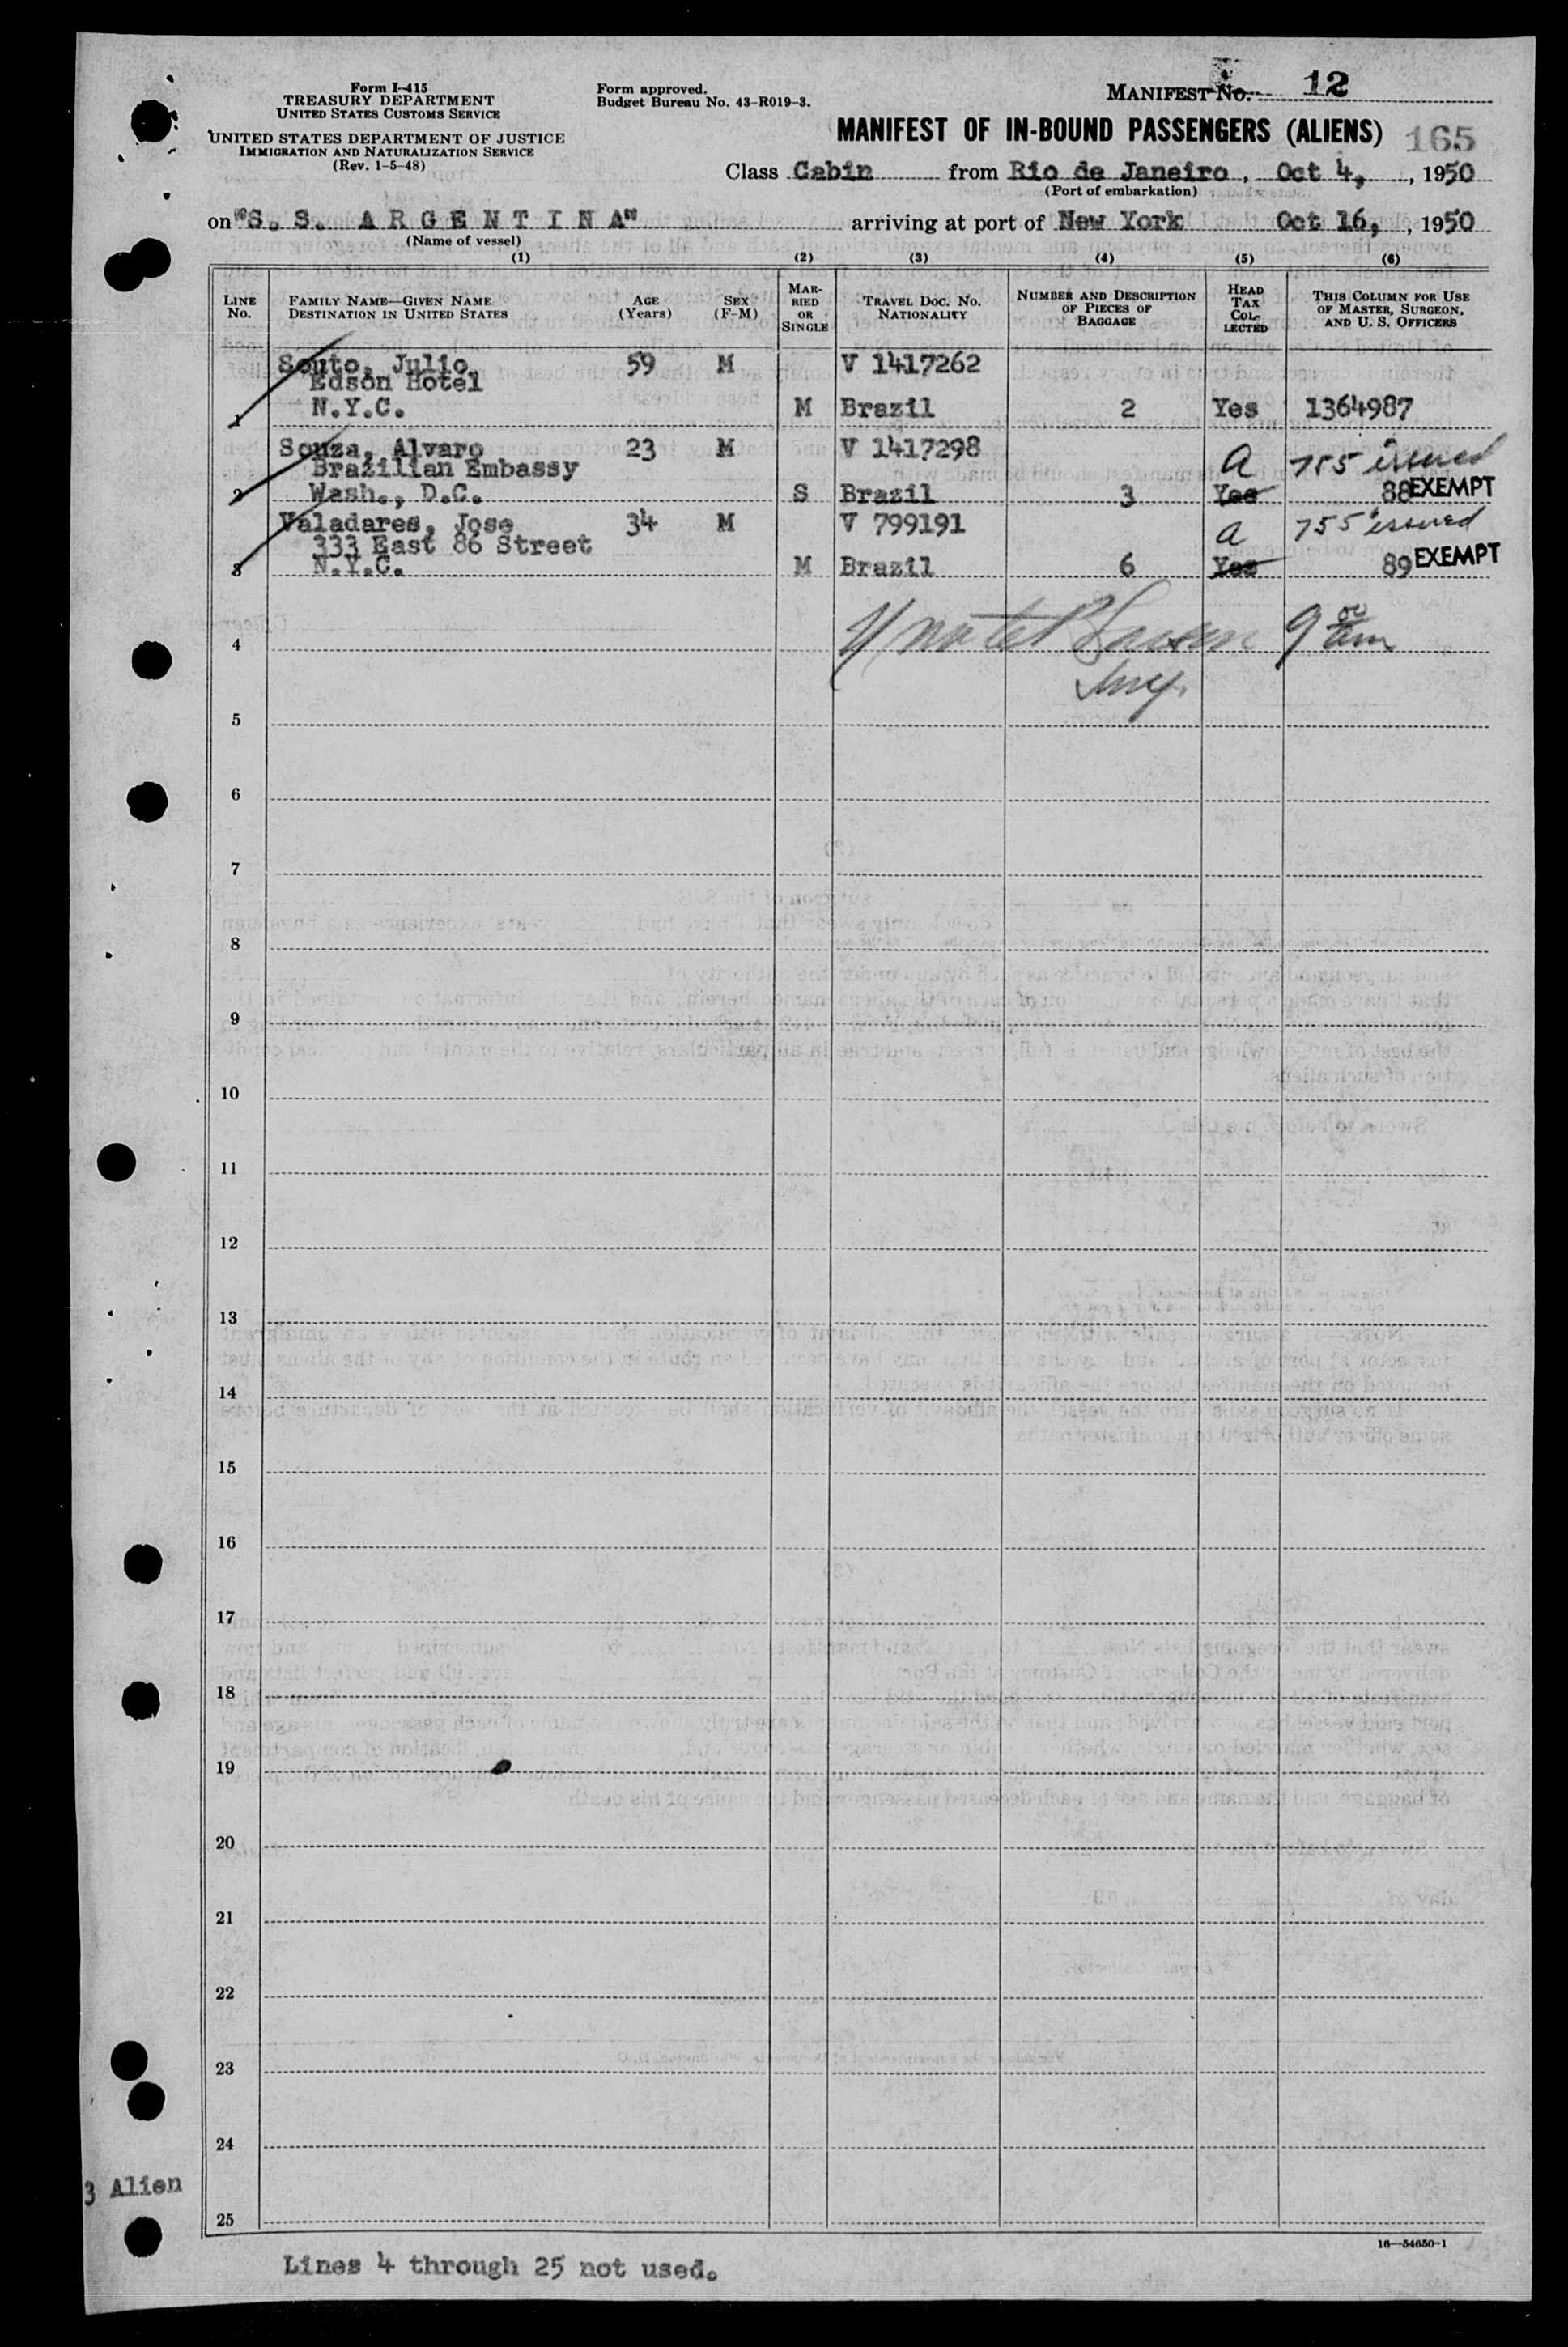 Form I-415
TREASURY DEPARTMENT
UNITED STATES CUSTOMS SERVICE
UNITED STATES DEPARTMENT OF JUSTICE
IMMIGRATION AND NATURALIZATION SERVICE
(Rev. 1-5-48)
Form approved.
Budget Bureau No. 43-R019-3.
MANIFEST No. 12
MANIFEST OF IN-BOUND PASSENGERS (ALIENS) 165
Class Cabin from Rio de Janeiro, Oct 4, , 1950
(Port of embarkation)
on "S. S. A R G E N T I N A" arriving at port of New York Oct 16, , 1950
(Name of vessel)
(1) (2) (3) (4) (5) (6)
LINE No. FAMILY NAME—GIVEN NAME DESTINATION IN UNITED STATES AGE (Years) SEX (F-M) MARRIED OR SINGLE TRAVEL DOC. NO. NATIONALITY NUMBER AND DESCRIPTION OF PIECES OF BAGGAGE HEAD TAX COLLECTED THIS COLUMN FOR USE OF MASTER, SURGEON, AND U. S. OFFICERS
Souto, Julio 59 M V 1417262
Edson Hotel
1 N.Y.C. M Brazil 2 Yes 1364987
Souza, Alvaro 23 M V 1417298 a 755 issued
Brazilian Embassy
2 Wash., D.C. S Brazil 3 Yes 88 EXEMPT
Valadares, Jose 34 M V 799191 a 755 issued
333 East 86 Street
3 N.Y.C. M Brazil 6 Yes 89 EXEMPT
4 9 00 am
Insp.
5
6
7
8
9
10
11
12
13
14
15
16
17
18
19
20
21
22
23
24
3 Alien
25
16—54650-1
Lines 4 through 25 not used.